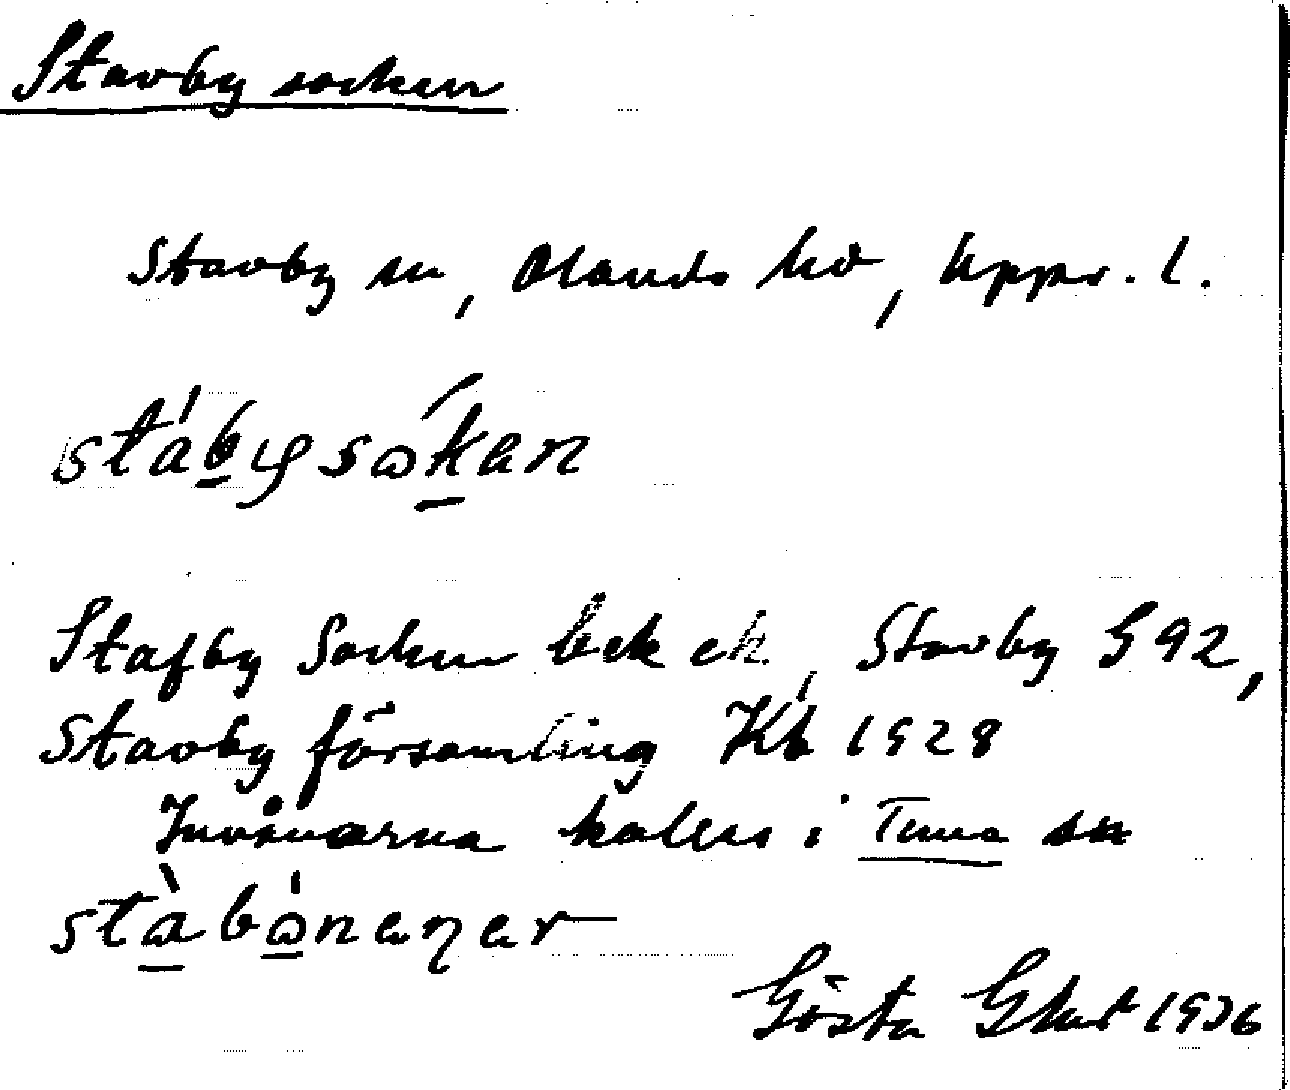 Stavby socken
Stavby sn, Olands hd, Uppr. l.
stábysɷ́kan
Stafby Socken bek ek, Stavby G 92,
Stavby församling Kb 1928
Invånarna kallas i Tuna sn
stàbɷ̀naŋar
Gösta 1936